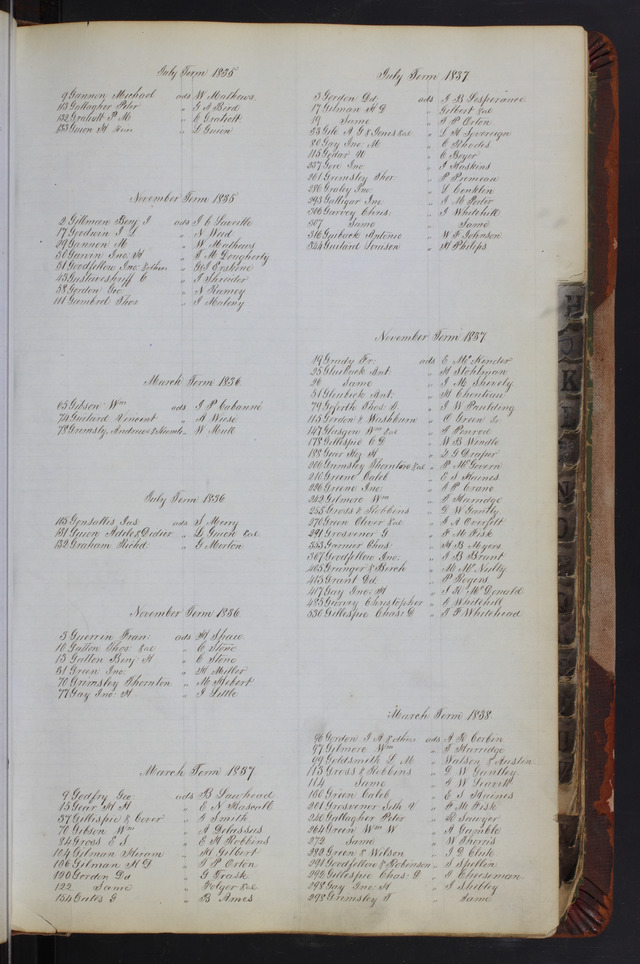 July Term 1835
9 Gannon Michael ads W Mathews
113 Gallagher Peter " G A Bird
132 Grahott P M " C Grahott
133 Guion H " L Guion
November Term 1835
2 Gillman Benj I ads I C Laveille
17 Goodwin I L " N Weid
29 Gannon M " W Mathews
30 Garvin Jno: H " I M Dougherty
31 Goodfellow Jno: & others " Geo Erskine
43 C " I Shreider
58 Gordon Geo: " N Ranney
111 Gambrel Thos " I Malony
March Term 1836
65 Gibson Wm ads I P Cabanné
74 Guitard Vincent " A Wiese
78 Grimsly, Andrew " W Mull
July Term 1836
115 Gonsollis Jas ads S Merry
131 Guion Adele & Didier " Ls Guion &al
132 Graham Richd. " G Morton
November Term 1836
3 Guerrin Fran: ads H Shaw
10 Gatton Thos &al " C Stone
13 Gatton Benj H " C Stone
31 Green Jno: " H Miller
70 Grimsley Thornton " M Hebert
77 Gay Jno: H " I Little
March Term 1837
9 Godfry Geo: ads B Lawhead
15 Gear H H " E N Haskell
37 Gillespie & Cover " A Smith
70 Gibson Wm " A Delassus
84 Gross E S " E H Robbins
104 Gilman Hiram " H Gilbert
106 Gilman H D " I P Orton
120 Gordon Dd " G Trask
122 Same " Folger &al
154 Gates G " B Ames
July Term 1837
3 Gordon Dd. ads I B Lesperance
17 Gilman H D " Gilbert &al
19 Same " I P Orton
53 Gale A G & &al " L H Sovereign
80 Gay Jno M " C Rhodes
115 " C Boyer
137 Gore Jno " I Haskins
201 Grimsley Thor " P Primeau
286 Jno: " L Conklin
293 Galligar Jno " I M Peter
306 Garvey Chris: " I Whitehill
307 Same " Same
316 Guibuck Antonie " W F Johnson
344 Guitard Louson " H Philips
November Term 1837
19 Grady Fr: ads E McKender
25 Gluibuck Ant. " H Stohlman
26 Same " I M Shively
51 Gleibuck Ant. " H Chouteau
79 Goforth Thos D " I W Paulding
115 Gordon & Washburn " O Green Sr
147 Glasgow Wm &al " P Penrod
178 Gillespie C G " W B Windle
188 Gear Hez H " D G Draper
206 Grimsley Thornton &al " P McGovern
210 Greene Caleb " E S Haines
226 Greene Jno: " I P Crane
242 Gilmore Wm " I Harridge
255 Gross & Robbins " D W Gantly
270 Green Oliver &al " I A Overfelt
291 Grosvenor G " F M Fisk
333 Garnier Chas " H B Myers
367 Goodfellow Jno: " I B Brant
405 Granger & Birch " M McNulty
415 Grant Dd. " P Rogers
417 Gay Jno: H " I R McDonald
425 Garvey Christopher " E Whitehill
530 Gillespie Chas: G " I P Whitehead
March Term 1838
96 Gordon I A & others ads A R Corbin
97 Gilmore Wm " I Harridge
99 Goldsmith L M " Watson & Austin
113 Gross & Robbins " D W Gantley
114 Same " I W Leavitt
166 Green Caleb " E S Haines
201 Grosvenor Seth V " F M Fisk
240 Gallagher Peter " R Sawyer
264 Green Wm W " A Gamble
272 Same " W Morris
280 Green & Wilson " I G Clark
291 Goodfellow & Robinson " A Spellen
292 Gillespie Chas: G " I Cheeseman
298 Gay Jno: H " I Shelby
298 Grimsley T " Same
H
J
K
N
O